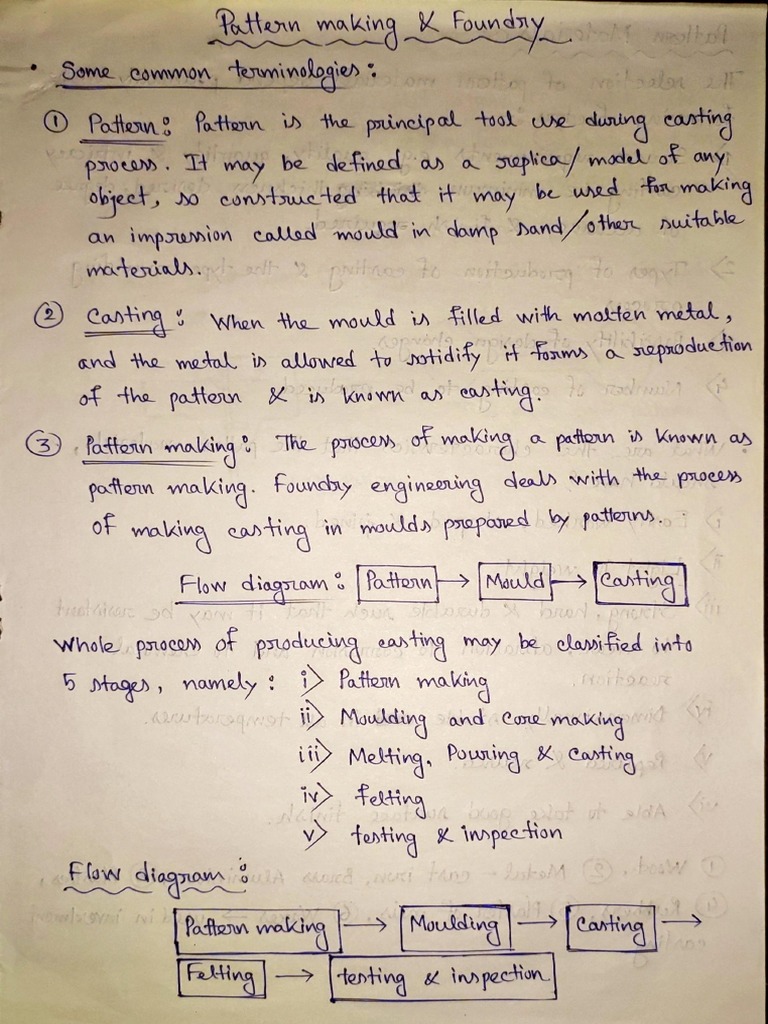 Pattern making & Foundry
• Some common terminologies:
① Pattern: Pattern is the principal tool use during casting
process. It may be defined as a replica/model of any
object, so constructed that it may be used for making
an impression called mould in damp sand/other suitable
materials.
② Casting: When the mould is filled with molten metal,
and the metal is allowed to solidify it forms a reproduction
of the pattern & is known as casting.
③ Pattern making: The process of making a pattern is known as
pattern making. Foundry engineering deals with the process
of making casting in moulds prepared by patterns.
Flow diagram: Pattern → Mould → Casting
Whole process of producing casting may be classified into
5 stages, namely: i> Pattern making
ii> Moulding and core making
iii> Melting, Pouring & casting
iv> Felting
v> testing & inspection
Flow diagram:
Pattern making → Moulding → Casting →
Felting → testing & inspection